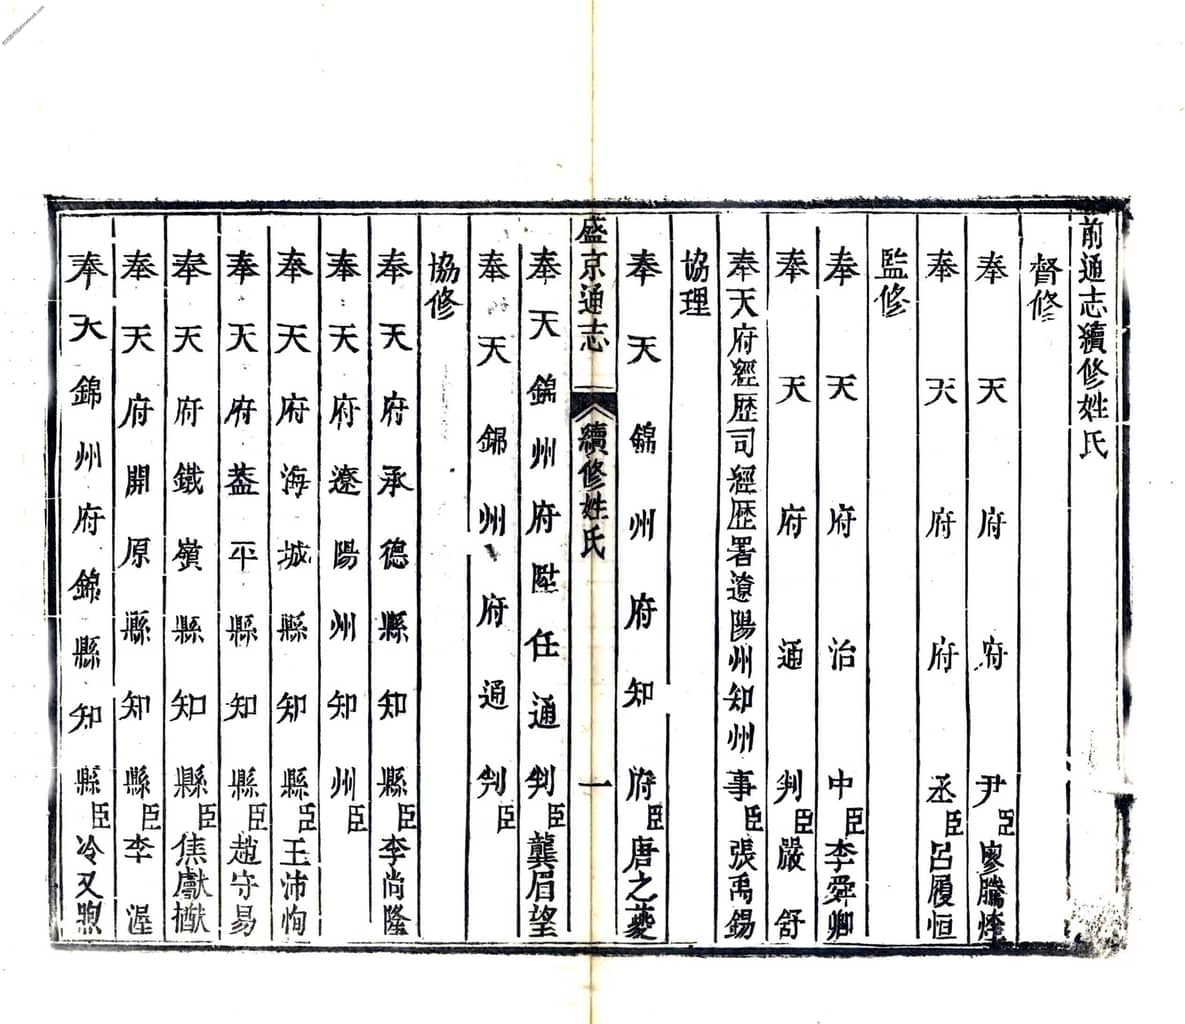 前通志續修姓氏
督修
奉天府府尹臣廖騰煃
奉天府府丞臣呂履恒
監修
奉天府治中臣李舜卿
奉天府通判臣嚴舒
奉天府經歷司經歷署遼陽州知州事臣張禹錫
協理
奉天錦州府知府臣唐之夔
盛京通志 續修姓氏 一
奉天錦州府陞任通判臣龔眉望
奉天錦州府通判臣
協修
奉天府承德縣知縣臣李尚隆
奉天府遼陽州知州臣
奉天府海城縣知縣臣王沛恂
奉天府蓋平縣知縣臣趙守易
奉天府鐵嶺縣知縣臣焦獻猷
奉天府開原縣知縣臣李渥
奉天錦州府錦縣知縣臣冷又